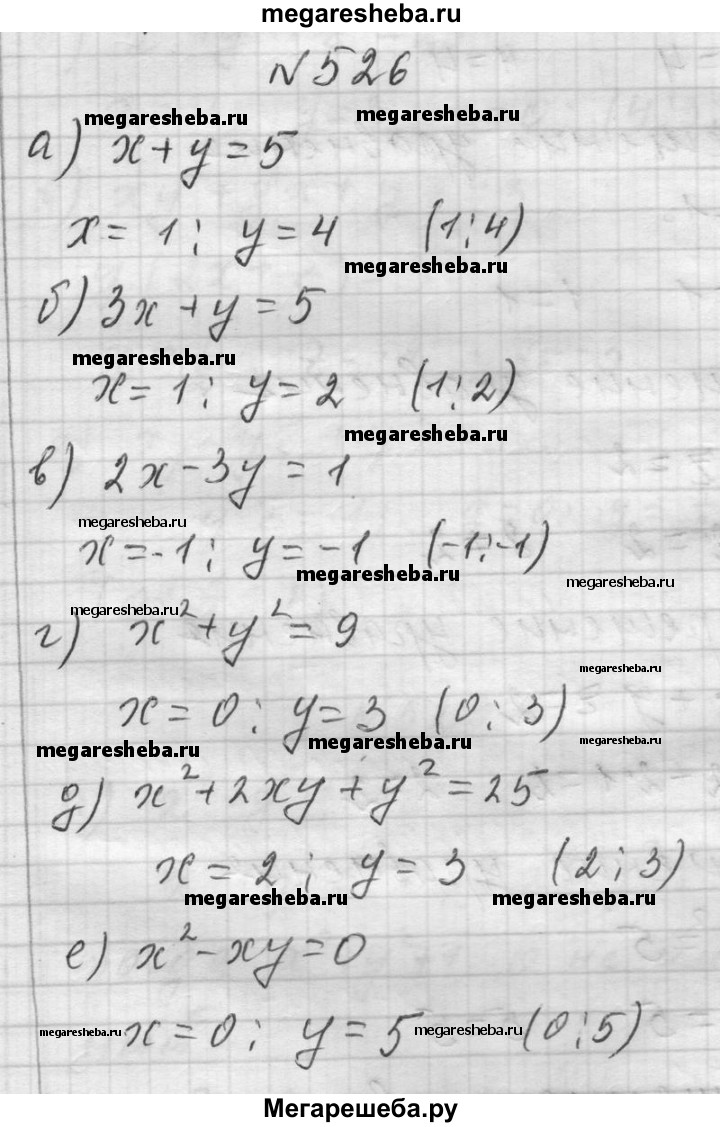 megaresheba.ru
№526
megaresheba.ru megaresheba.ru
а) x+y=5
x=1; y=4 (1;4)
megaresheba.ru
б) 3x+y=5
megaresheba.ru
x=1; y=2 (1;2)
megaresheba.ru
в) 2x-3y=1
megaresheba.ru
x=-1; y=-1 (-1;-1)
megaresheba.ru megaresheba.ru
megaresheba.ru
г) x²+y²=9
megaresheba.ru
x=0; y=3 (0;3)
megaresheba.ru megaresheba.ru megaresheba.ru
д) x²+2xy+y²=25
x=2; y=3 (2;3)
megaresheba.ru megaresheba.ru
е) x²-xy=0
megaresheba.ru x=0; y=5 megaresheba.ru (0;5)
Мегарешеба.ру